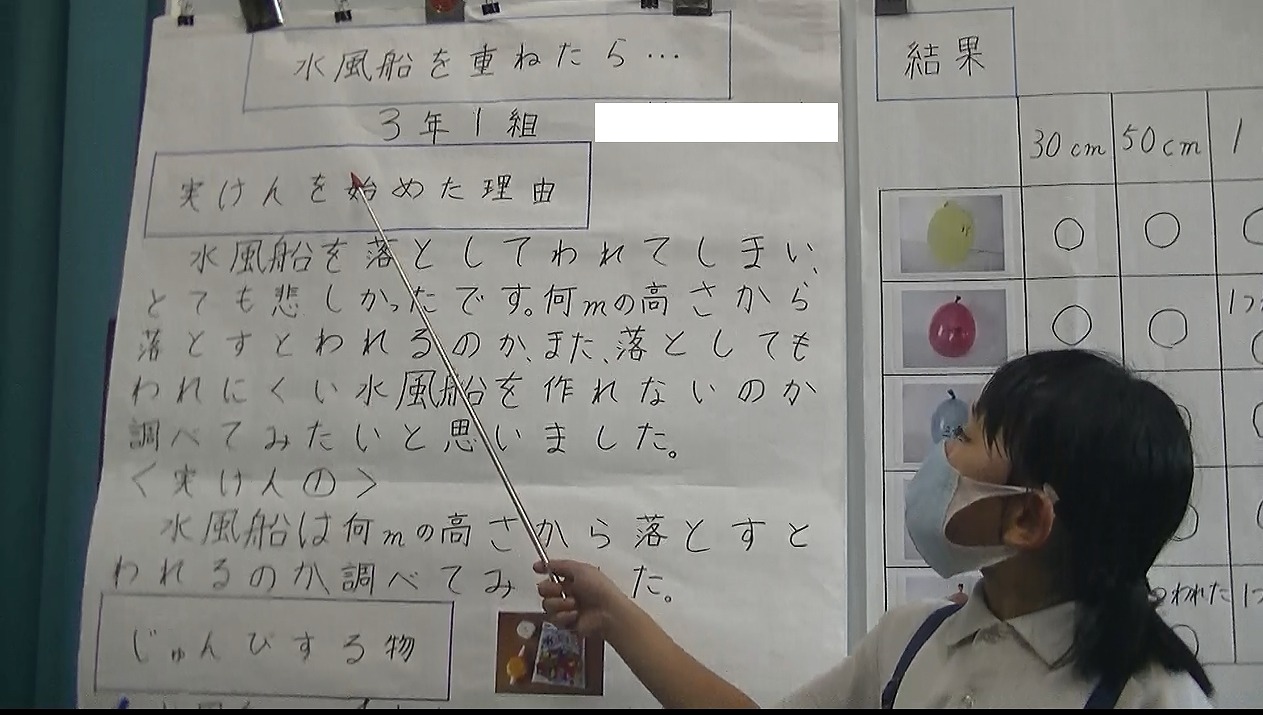 水風船を重ねたら…
3年1組
実けんを始めた理由
水風船を落としてわれてしまい、
とても悲しかったです。何mの高さから
落とすとわれるのか、また、落としても
われにくい水風船を作れないのか
調べてみたいと思いました。
＜実け人の＞
水風船は何mの高さから落とすと
われるのか調べてみ した。
じゅんびする物
結果
30cm 50cm 1
○ ○
○ ○
われた